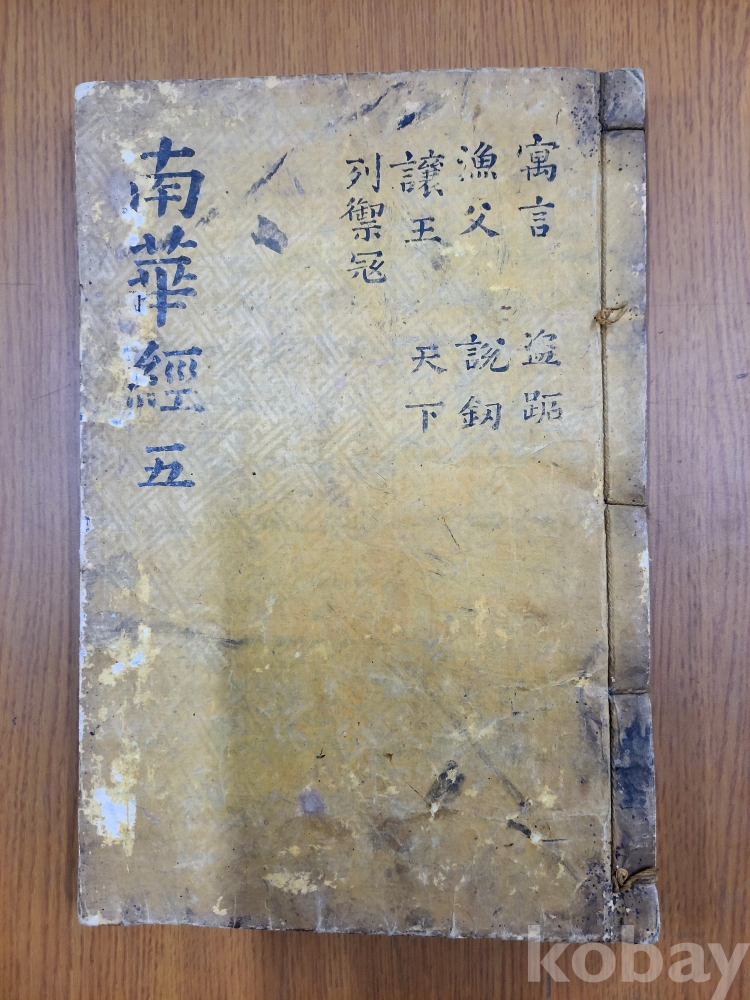 寓言 盗跖
漁父 說釰
讓王 天下
列禦冦
南華經 五
kobay